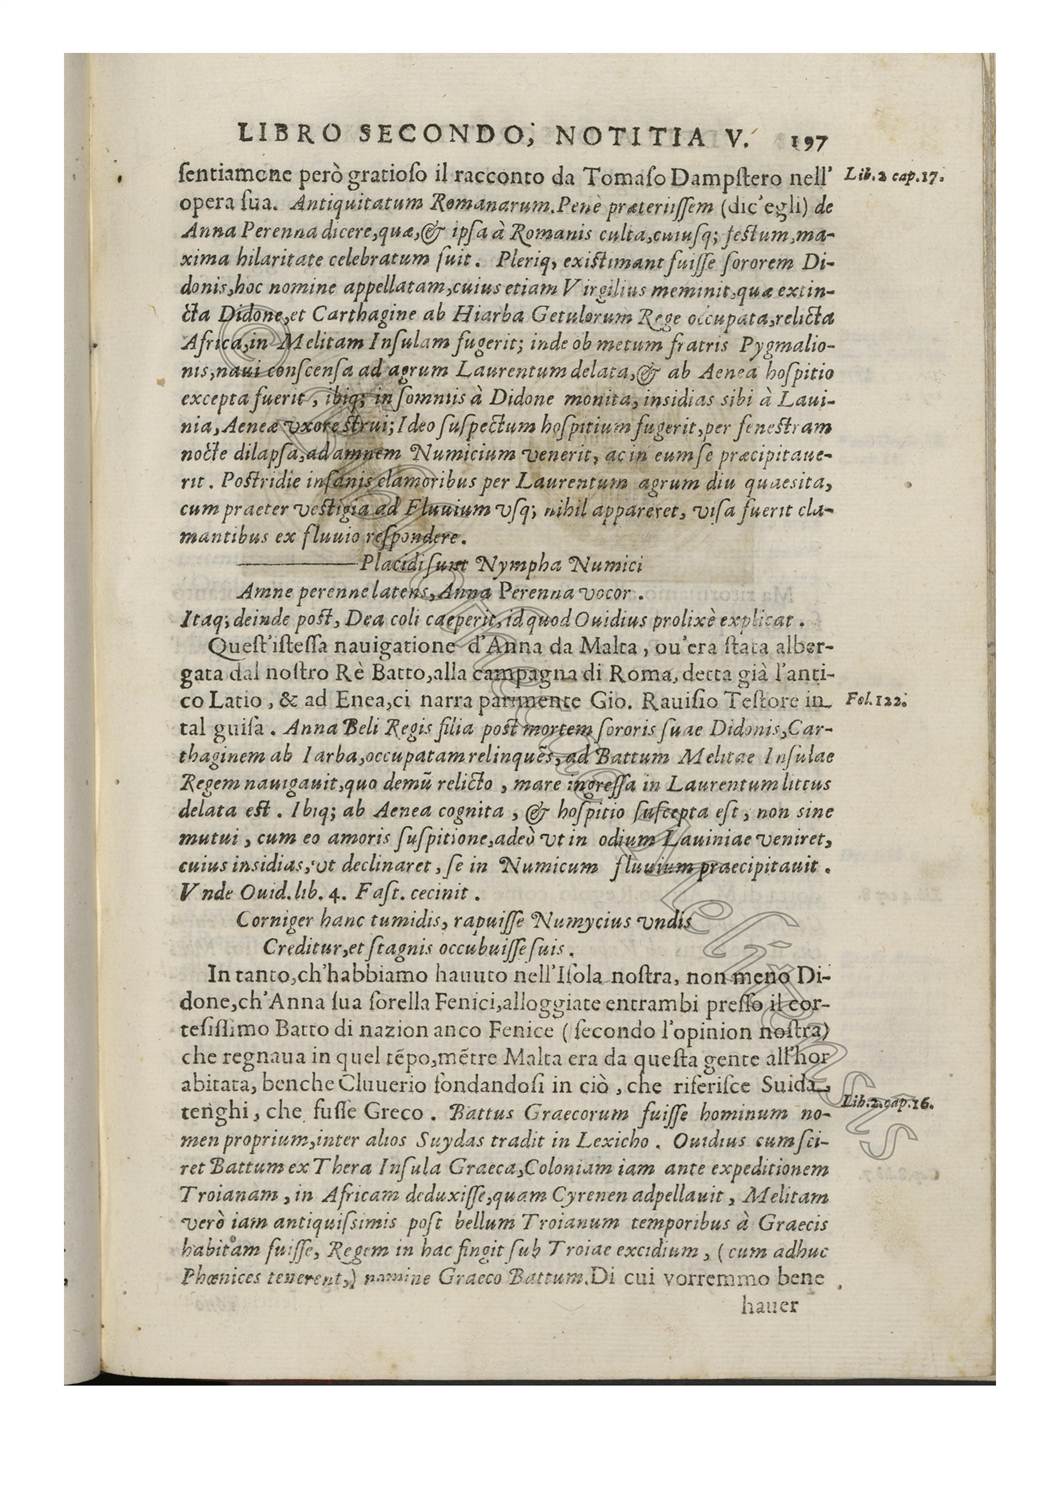 LIBRO SECONDO, NOTITIA V. 197
ſentiamone però gratioſo il racconto da Tomaſo Dampſtero nell' Lib. 2 cap. 17.
opera ſua. Antiquitatum Romanarum. Penè præteriiſſem (dic'egli) de
Anna Perenna dicere, quæ, & ipſa à Romanis culta, cuiuſq; feſtum, ma-
xima hilaritate celebratum fuit. Pleriq, exiſtimant fuiſſe ſororem Di-
donis, hoc nomine appellatam, cuius etiam Virgilius meminit, quæ extin-
cta Didone, et Carthagine ab Hiarba Getulorum Rege occupata, relicta
Africa, in Melitam Inſulam fugerit; inde ob metum fratris Pygmalio-
nis, naui conſcenſa ad agrum Laurentum delata, & ab Aenea hoſpitio
excepta fuerit, ibiq; in ſomniis à Didone monita, inſidias ſibi à Laui-
nia, Aeneæ vxore ſtrui; Ideo ſuſpectum hoſpitium fugerit, per feneſtram
nocte dilapſa, ad amnem Numicium venerit, ac in eum ſe præcipitaue-
rit. Poſtridie inſanis clamoribus per Laurentum agrum diu quaeſita,
cum praeter veſtigia ad Fluuium vſq; nihil appareret, viſa fuerit cla-
mantibus ex fluuio reſpondere.
Placidi ſum Nympha Numici
Amne perenne latens, Anna Perenna vocor.
Itaq; deinde poſt, Dea coli caeperit, id quod Ouidius prolixè explicat.
Queſt'iſteſſa nauigatione d'Anna da Malta, ou'era ſtata alber-
gata dal noſtro Rè Batto, alla campagna di Roma, detta già l'anti-
co Latio, & ad Enea, ci narra parimente Gio. Rauiſio Teſtore in Fol. 122.
tal guiſa. Anna Beli Regis filia poſt mortem ſororis ſuae Didonis, Car-
thaginem ab Iarba, occupatam relinquẽs, ad Battum Melitae Inſulae
Regem nauigauit, quo demũ relicto, mare ingreſſa in Laurentum littus
delata eſt. Ibiq; ab Aenea cognita, & hoſpitio ſuſcepta eſt, non sine
mutui, cum eo amoris ſuſpitione, adeò vt in odium Lauiniae veniret,
cuius inſidias, vt declinaret, ſe in Numicum fluuium praecipitauit.
Vnde Ouid. lib. 4. Faſt. cecinit.
Corniger hanc tumidis, rapuiſſe Numycius vndis
Creditur, et ſtagnis occubuiſſe ſuis.
In tanto, ch'habbiamo hauuto nell'Iſola noſtra, non meno Di-
done, ch'Anna ſua ſorella Fenici, alloggiate entrambi preſſo il cor-
teſiſſimo Batto di nazion anco Fenice (ſecondo l'opinion noſtra)
che regnaua in quel tẽpo, mẽtre Malta era da queſta gente all'hor
abitata, benche Cluuerio fondandoſi in ciò, che riferiſce Suida
tenghi, che fuſſe Greco. Battus Graecorum fuiſſe hominum no- Lib. 2. cap. 16.
men proprium, inter alios Suydas tradit in Lexicho. Ouidius cum ſci-
ret Battum ex Thera Inſula Graeca, Coloniam iam ante expeditionem
Troianam, in Africam deduxiſſe, quam Cyrenen adpellauit, Melitam
verò iam antiquiſsimis poſt bellum Troianum temporibus à Graecis
habitam fuiſſe, Regem in hac fingit ſub Troiae excidium, (cum adhuc
Phœnices tenerent,) nomine Graeco Battum. Di cui vorremmo bene
hauer
© Bibliotheca Melitensis